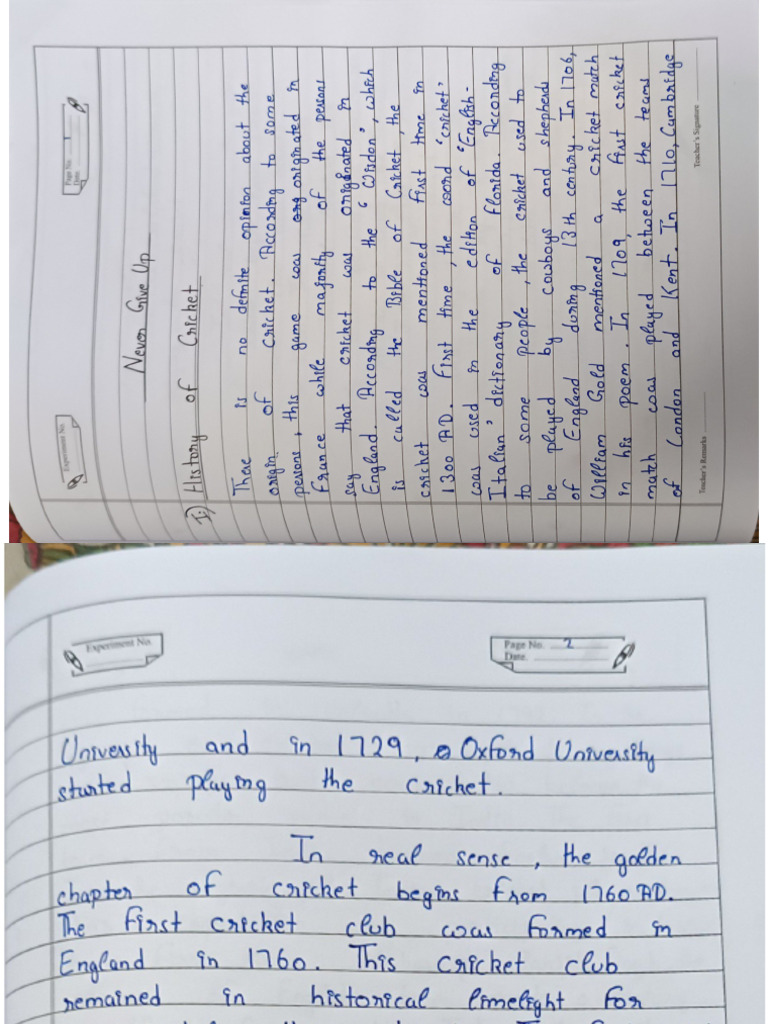 Experiment No.
Page No. 1
Date
Never Give Up
I:) History of Cricket
There is no definite opinion about the
origin of cricket. According to some
persons, this game was originated in
France while majority of the persons
say that cricket was originated in
England. According to the "Wisdon", which
is called the Bible of Cricket, the
cricket was mentioned first time in
1300 AD. First time, the word 'cricket'
was used in the edition of "English-
Italian' dictionary of Florida. According
to some people, the cricket used to
be played by cowboys and shepherds
of England during 13th century. In 1706,
William Gold mentioned a cricket match
in his poem. In 1709, the first cricket
match was played between the teams
of London and Kent. In 1710, Cambridge
Teacher's Remarks
Teacher's Signature
Experiment No.
Page No. 2
Date
University and in 1729, Oxford University
started playing the cricket.
In real sense, the golden
chapter of cricket begins from 1760 AD.
The first cricket club was formed in
England in 1760. This cricket club
remained in historical limelight for